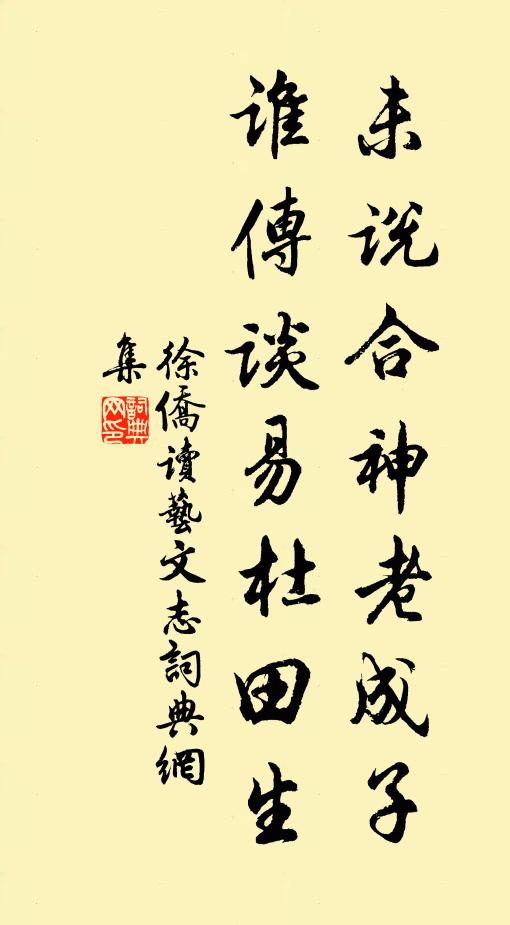 未说合神老成子
谁傳谈易杜田生
徐僑讀藝文志詞典網
集
詞典
网印